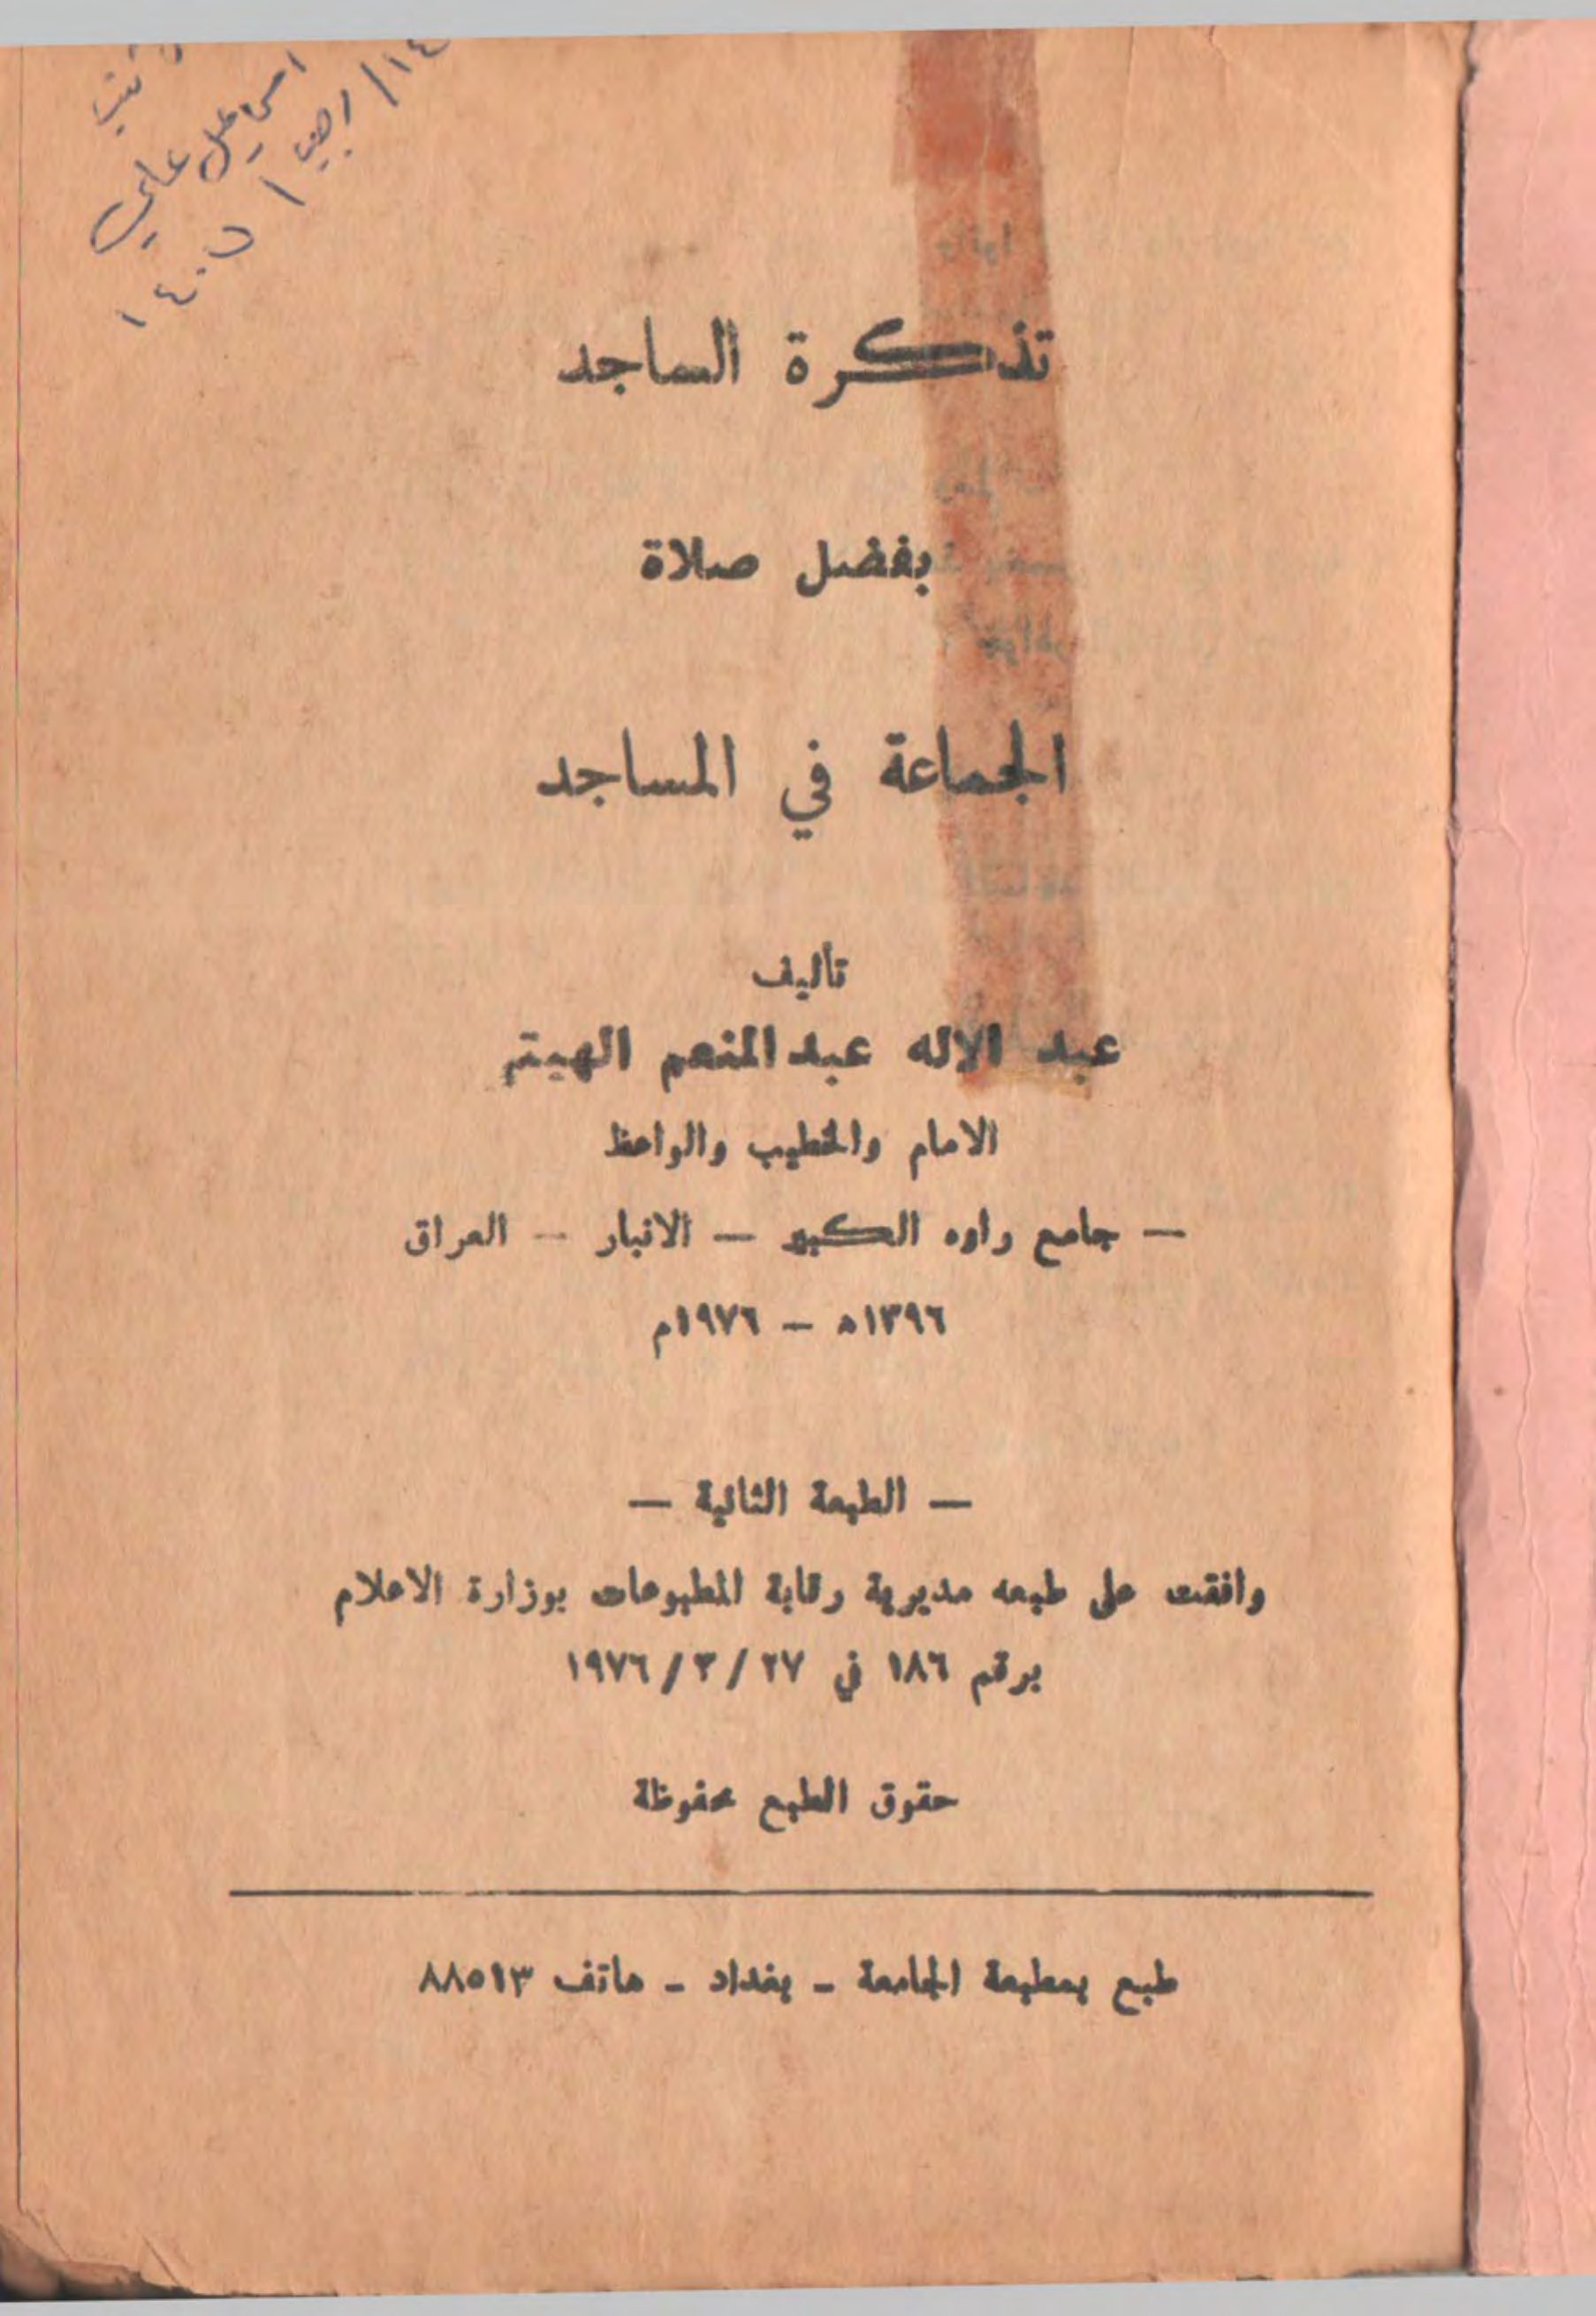 اسماعيل علي
١٤/رجب/
١٤٠٥
تذكرة الساجد
بفضل صلاة
الجماعة في المساجد
تأليف
عبد الاله عبد المنعم الهيتم
الامام والخطيب والواعظ
— جامع راوه الكبير — الانبار — العراق
١٣٩٦ه — ١٩٧٦م
— الطبعة الثانية —
وافقت على طبعه مديرية رقابة المطبوعات بوزارة الاعلام
برقم ١٨٦ في ٢٧/٣/١٩٧٦
حقوق الطبع محفوظة
طبع بمطبعة الجامعة - بغداد - هاتف ٨٨٥١٣